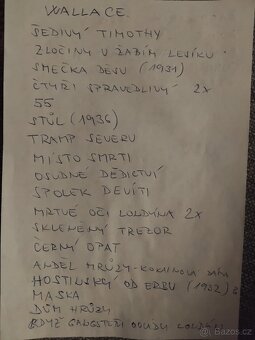 WALLACE.
ŠEDIVÝ TIMOTHY
ZLOČINY V ŽABÍM LESÍKU
SMEČKA DĚSU (1931)
ČTYŘI SPRAVEDLIVÝ 2x
55
STŮL (1936)
TRAMP SEVERU
MÍSTO SMRTI
OSUDNÉ DĚDICTVÍ
SPOLEK DEVÍTI
MRTVÉ OČI LONDÝNA 2x
SKLENĚNÝ TREZOR
ČERNÝ OPAT
ANDĚL HRŮZY
HOSTINSKÝ OD ERBU (1932)
MASKA
DŮM HRŮZY
KDYŽ GANGSTEŘI
Bazoš.cz